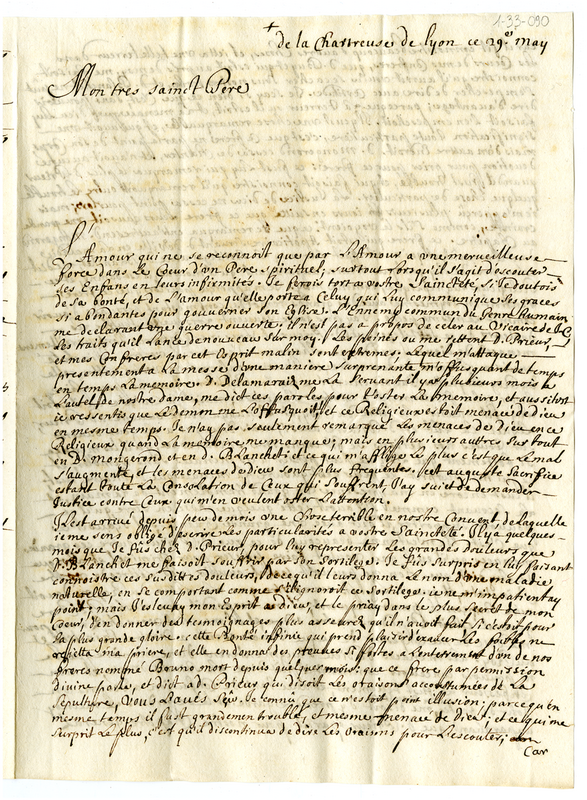 1-33-090
de la Chartreuse de lyon ce 29.e may
Mon tres sainct Pere
L'Amour qui ne se reconnoit que par L'Amour a vne merveilleuse
force dans le Cœur d'vn Pere spirituel, surtout lorsqu'il s'agit d'escouter
les Enfans en leurs infirmités. Je ferois tort a vostre Saincteté, si Je doutois
de sa bonté, et de L'amour qu'elle porte a Celuy qui Luy communique ses graces
si abondantes pour gouuerner son Eglise. L'Ennemy commun du Genre humain
me declarant vne guerre ouverte, il n'est pas a propos de celer au Vicaire de J.C.
les traits qu'il Lance de nouveau sur moy. Les peines ou me jettent D. Prieur,
et mes Confreres par cet Esprit malin sont extremes. Lequel m'attaque
presentement a La messe d'vne maniere surprenante, m'offusquant de temps
en temps La memoire. D. Delamarais me La servant il y a plusieurs mois a
L'autel de nostre dame, me dict ces paroles pour L'oster La memoire, et aussitost
ie ressentis que Le demon me L'offusquoit, et ce Religieux estoit menacé de dieu
en mesme temps. Je n'ay pas seulement remarqué Les menaces de dieu en ce
Religieux quand La memoire me manque; mais en plusieurs autres sur tout
en D. Mongerond et en d. Blanchet: et ce qui m'afflige Le plus c'est que Le mal
s'augmente, et les menaces de dieu sont plus frequentes. Cet auguste Sacrifice
estant toute La Consolation de Ceux qui souffrent, J'ay sujet de demander
Justice contre Ceux qui m'en veulent oster L'attention.
Il est arrivé depuis peu de mois vne chose terrible en nostre Convent, de laquelle
ie me sens obligé d'escrire Les particularités a vostre Saincteté. Il y a quelques
mois que Je fus chez D. Prieur, pour luy representer Les grandes douleurs que
D. Blanchet me faisoit souffrir par son Sortilege. Je fus surpris en luy faisant
connoistre ces susdites douleurs, de ce qu'il leur donna Le nom d'vne maladie
naturelle, en se comportant comme s'il ignoroit ce Sortilege. ie ne m'impatientay
point; mais J'eslevay mon Esprit a dieu, et le priay dans le plus secret de mon
Coeur, d'en donner des tesmoignages plus asseurez qu'il n'avoit fait si c'estoit pour
sa plus grande gloire. cette Bonté infinie qui prend plaisir d'exaucer Les foibles ne
rejetta ma priere, et elle en donna des preuves si fortes a L'enterrement d'vn de nos
freres nommé Bruno mort depuis quelques mois: que ce frere par permission
divine parla, et dict a d. Prieur qui disoit Les oraisons accoustumées de La
Sepulture, Vous Laués Sceu. Je connû que ce n'estoit point illusion: parce qu'en
mesme temps il fust grandement troublé, et mesme menacé de Dieu; et ce qui me
surprit Le plus, c'est qu'il discontinua de dire Les oraisons pour L'escouter;
Car